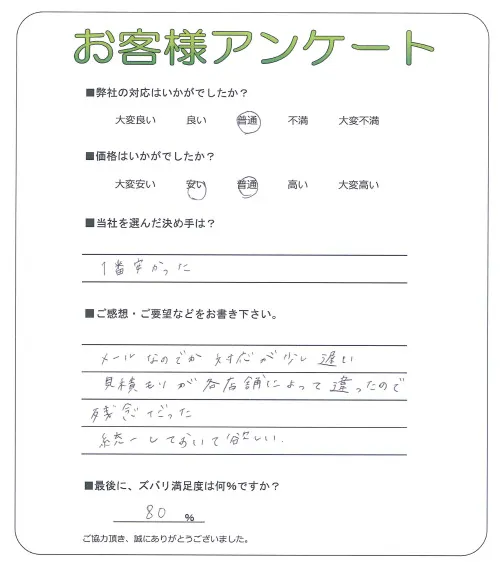 お客様アンケート
■弊社の対応はいかがでしたか？
大変良い 良い 普通 不満 大変不満
■価格はいかがでしたか？
大変安い 安い 普通 高い 大変高い
■当社を選んだ決め手は？
1番安かった
■ご感想・ご要望などをお書き下さい。
メールなのでか 対応が少し遅い
見積もりが各店舗によって違ったので
残念だった
統一しておいて欲しい.
■最後に、ズバリ満足度は何％ですか？
80 ％
ご協力頂き、誠にありがとうございました。